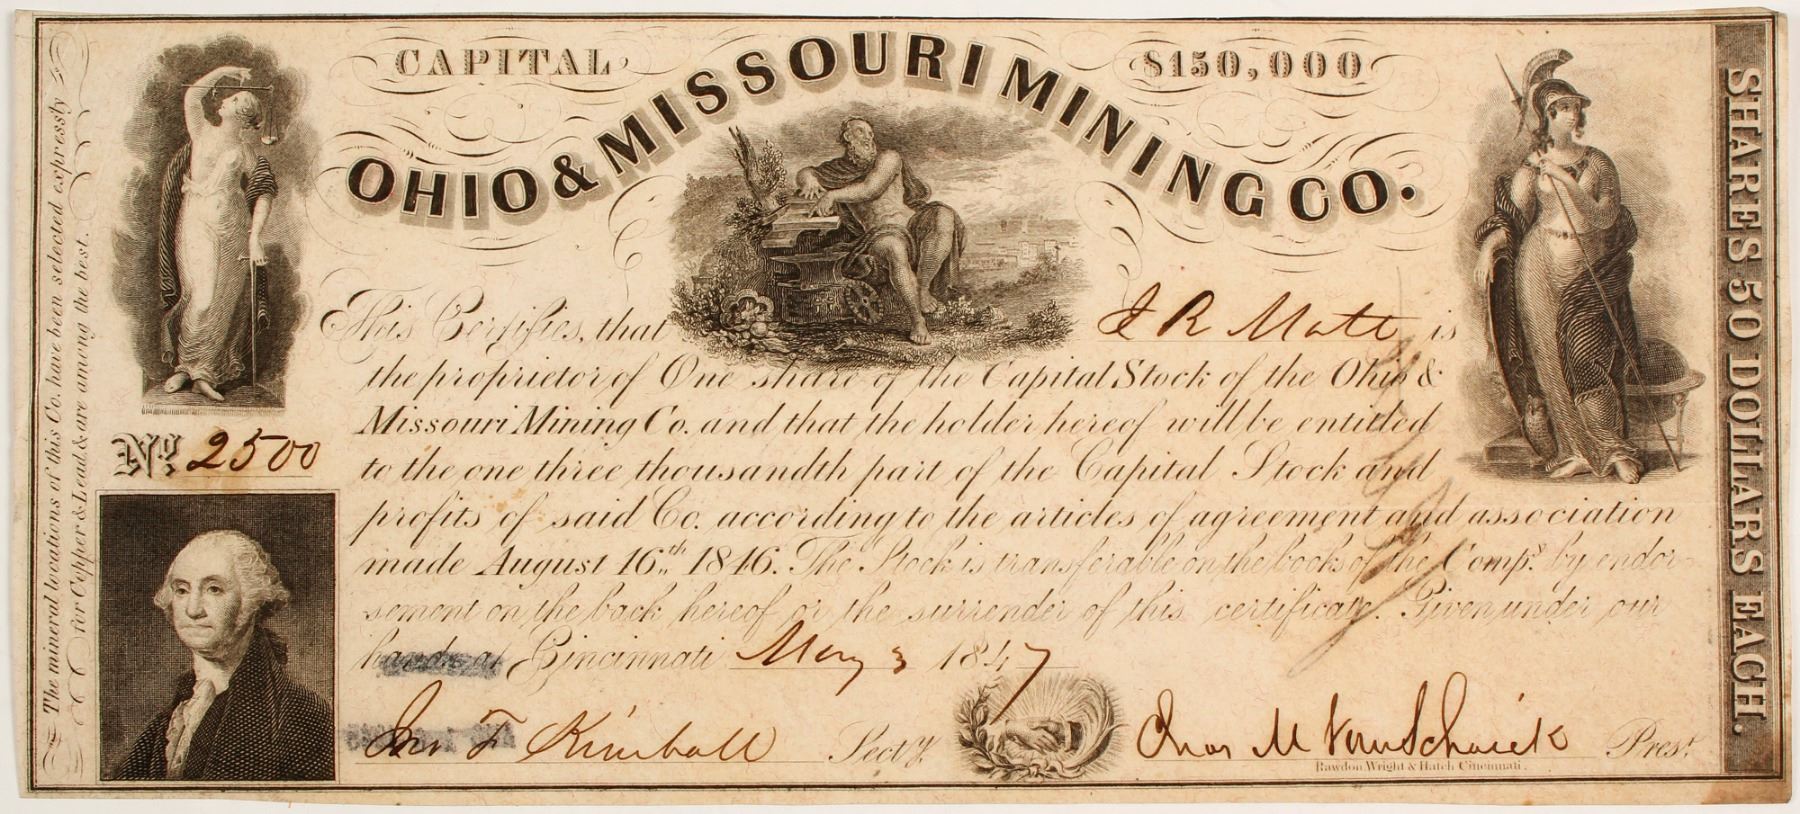 CAPITAL $150,000
OHIO & MISSOURI MINING CO.
This Certifies, that J R Mott is
the proprietor of One share of the Capital Stock of the Ohio &
Missouri Mining Co. and that the holder hereof will be entitled
to the one three thousandth part of the Capital Stock and
profits of said Co. according to the articles of agreement and association
made August 16th 1846. The Stock is transferable on the books of the Compy. by endor-
sement on the back hereof or the surrender of this certificate. Given under our
hands at Cincinnati May 3 1847
Jno F Kimball Secty. Chas M VanSchaick Prest.
Rawdon, Wright & Hatch Cincinnati.
No. 2500
The mineral locations of this Co. have been selected expressly
for Copper & Lead & are among the best.
SHARES 50 DOLLARS EACH.